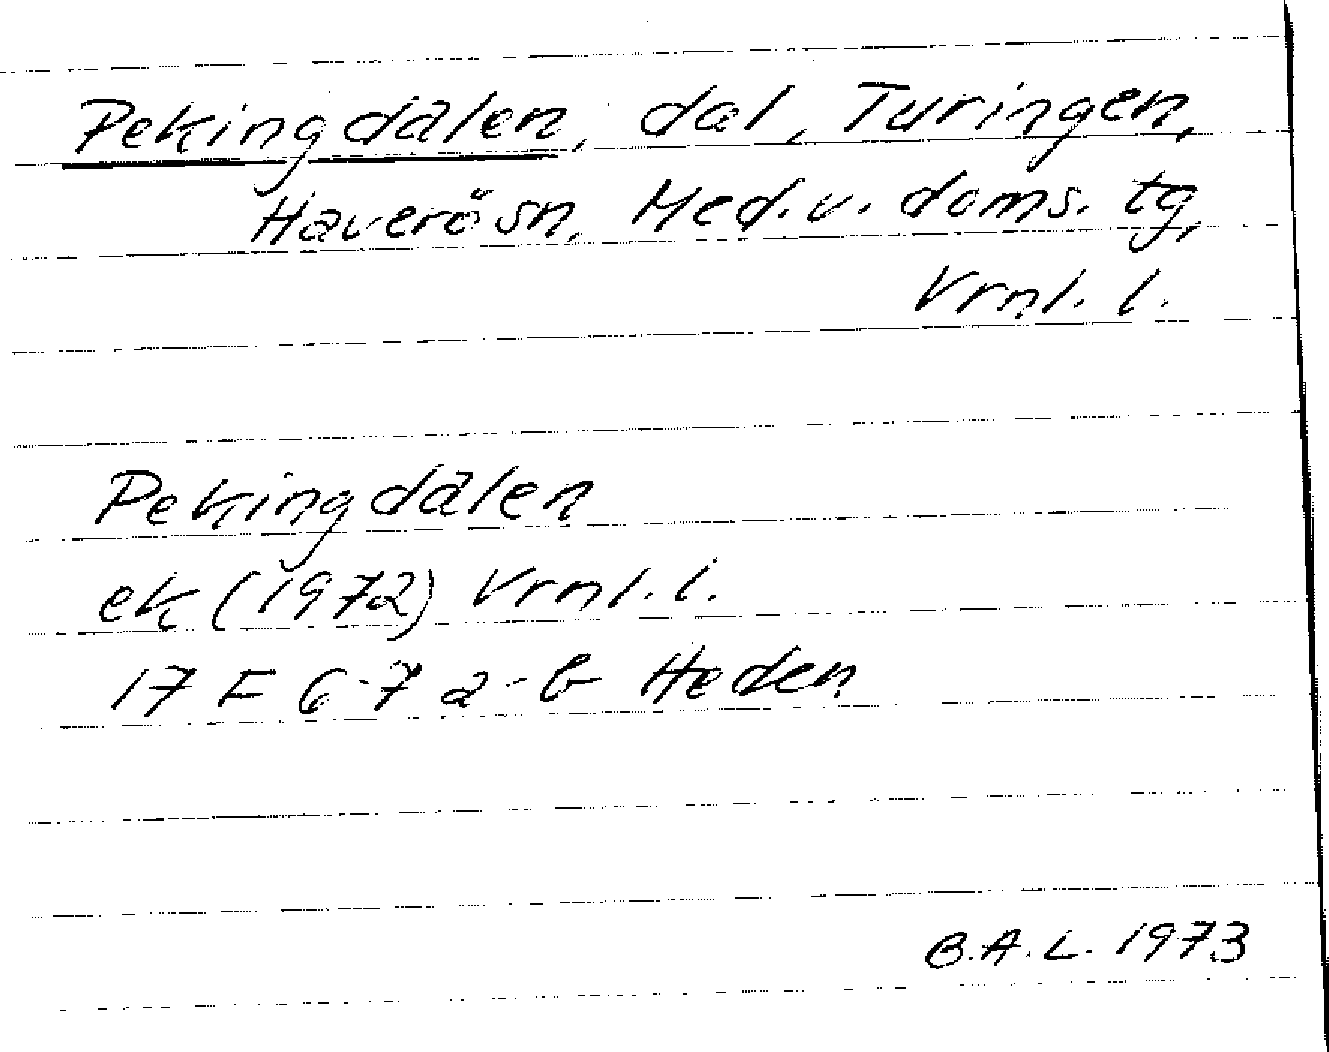 Pekingdalen, dal, Turingen,
Haverö sn, Med.v. doms. tg,
Vrnl. l.
Pekingdalen
ek (1972) Vrnl. l.
17 F 6-7 a-b Heden
B.A.L. 1973